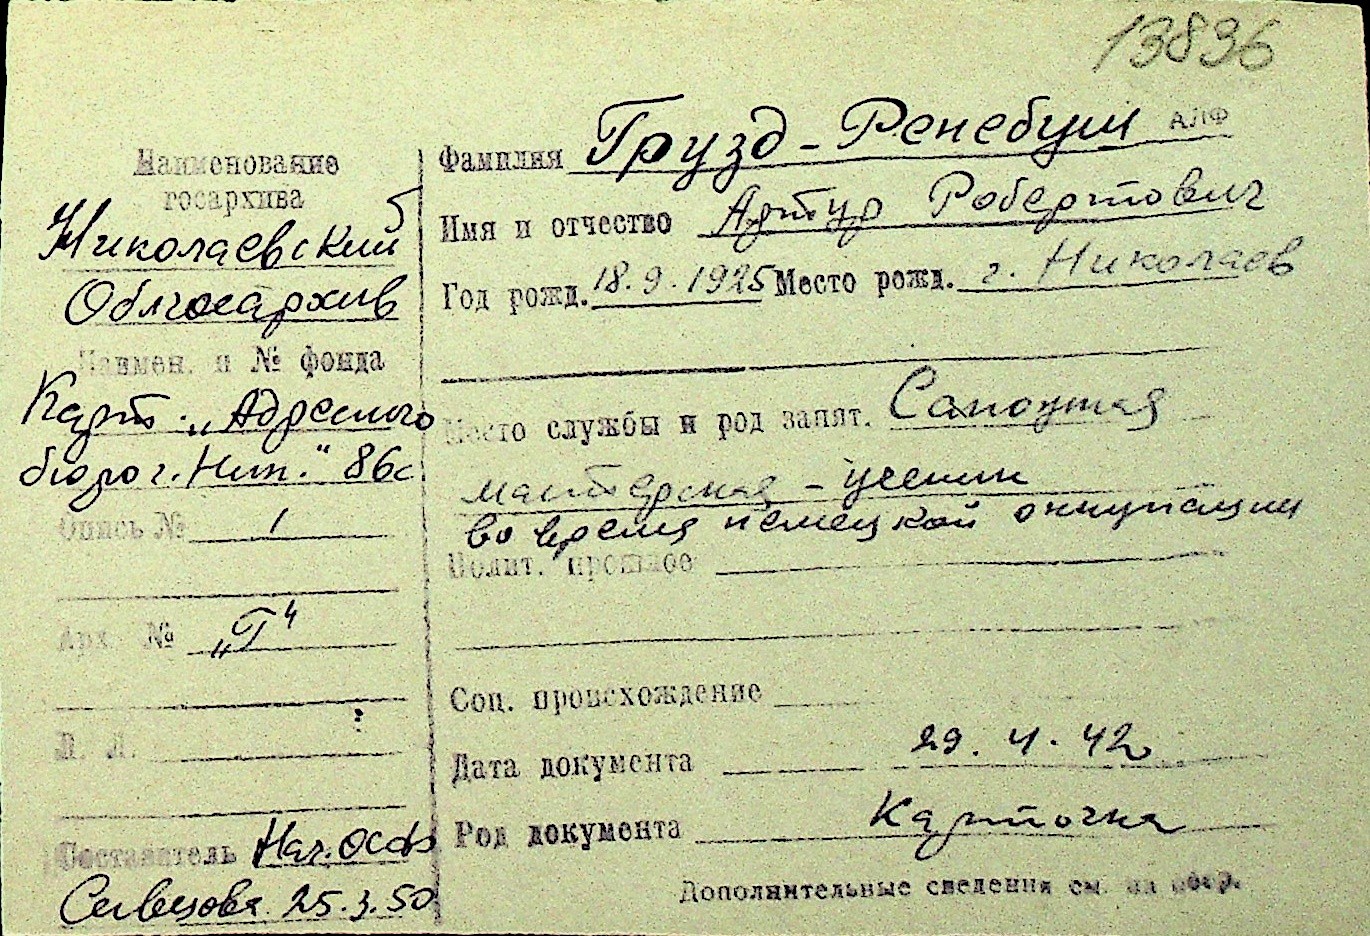 13836
Наименование
госархива
Николаевский
Облгосархив
Наимен. и № фонда
Карт. „Адресного
бюро г. Ник." 86с
Опись № 1
Арх. № „Г"
Л. Л.
Составитель Нач. ОСФ
25.3.50
Фамилия Грузд-Ренебуш АЛФ
Имя и отчество Артур Робертович
Год рожд. 18.9.1925 Место рожд. г. Николаев
Место службы и род занят. Сапожная
мастерская - ученик
во время немецкой оккупации
Полит. прошлое
Соц. происхождение
Дата документа 29. 4. 42
Род документа Карточка
Дополнительные сведения см. на обор.